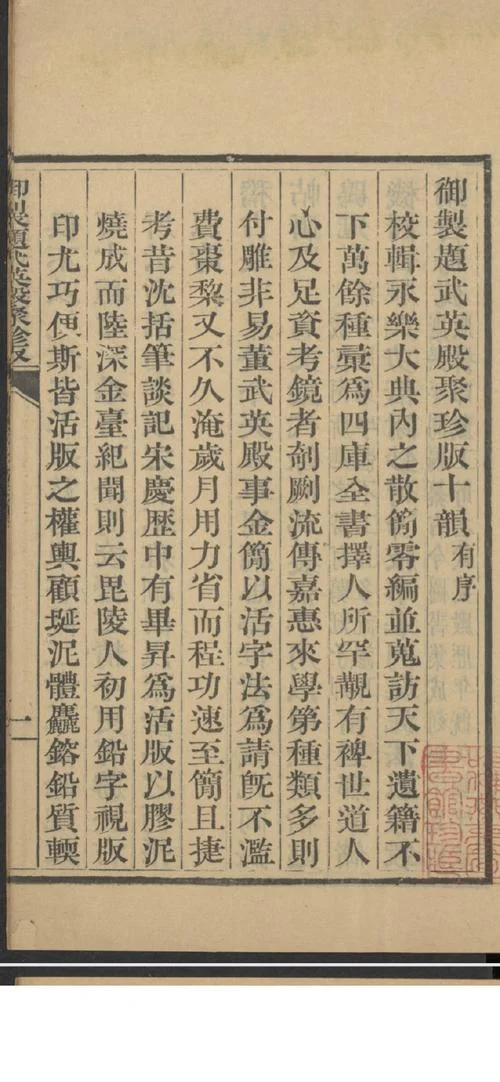 御製題武英殿聚珍版十韻有序
校輯永樂大典內之散簡零編並蒐訪天下遺籍不
下萬餘種彙爲四庫全書擇人所罕覯有裨世道人
心及足資考鏡者剞劂流傳嘉惠來學第種類多則
付雕非易董武英殿事金簡以活字法爲請既不濫
費棗黎又不久淹歲月用力省而程功速至簡且捷
考昔沈括筆談記宋慶歷中有畢昇爲活版以膠泥
燒成而陸深金臺紀聞則云毘陵人初用鉛字視版
印尤巧便斯皆活版之權輿顧埏泥體麤鎔鉛質輭
御製題武英殿聚珍版
一